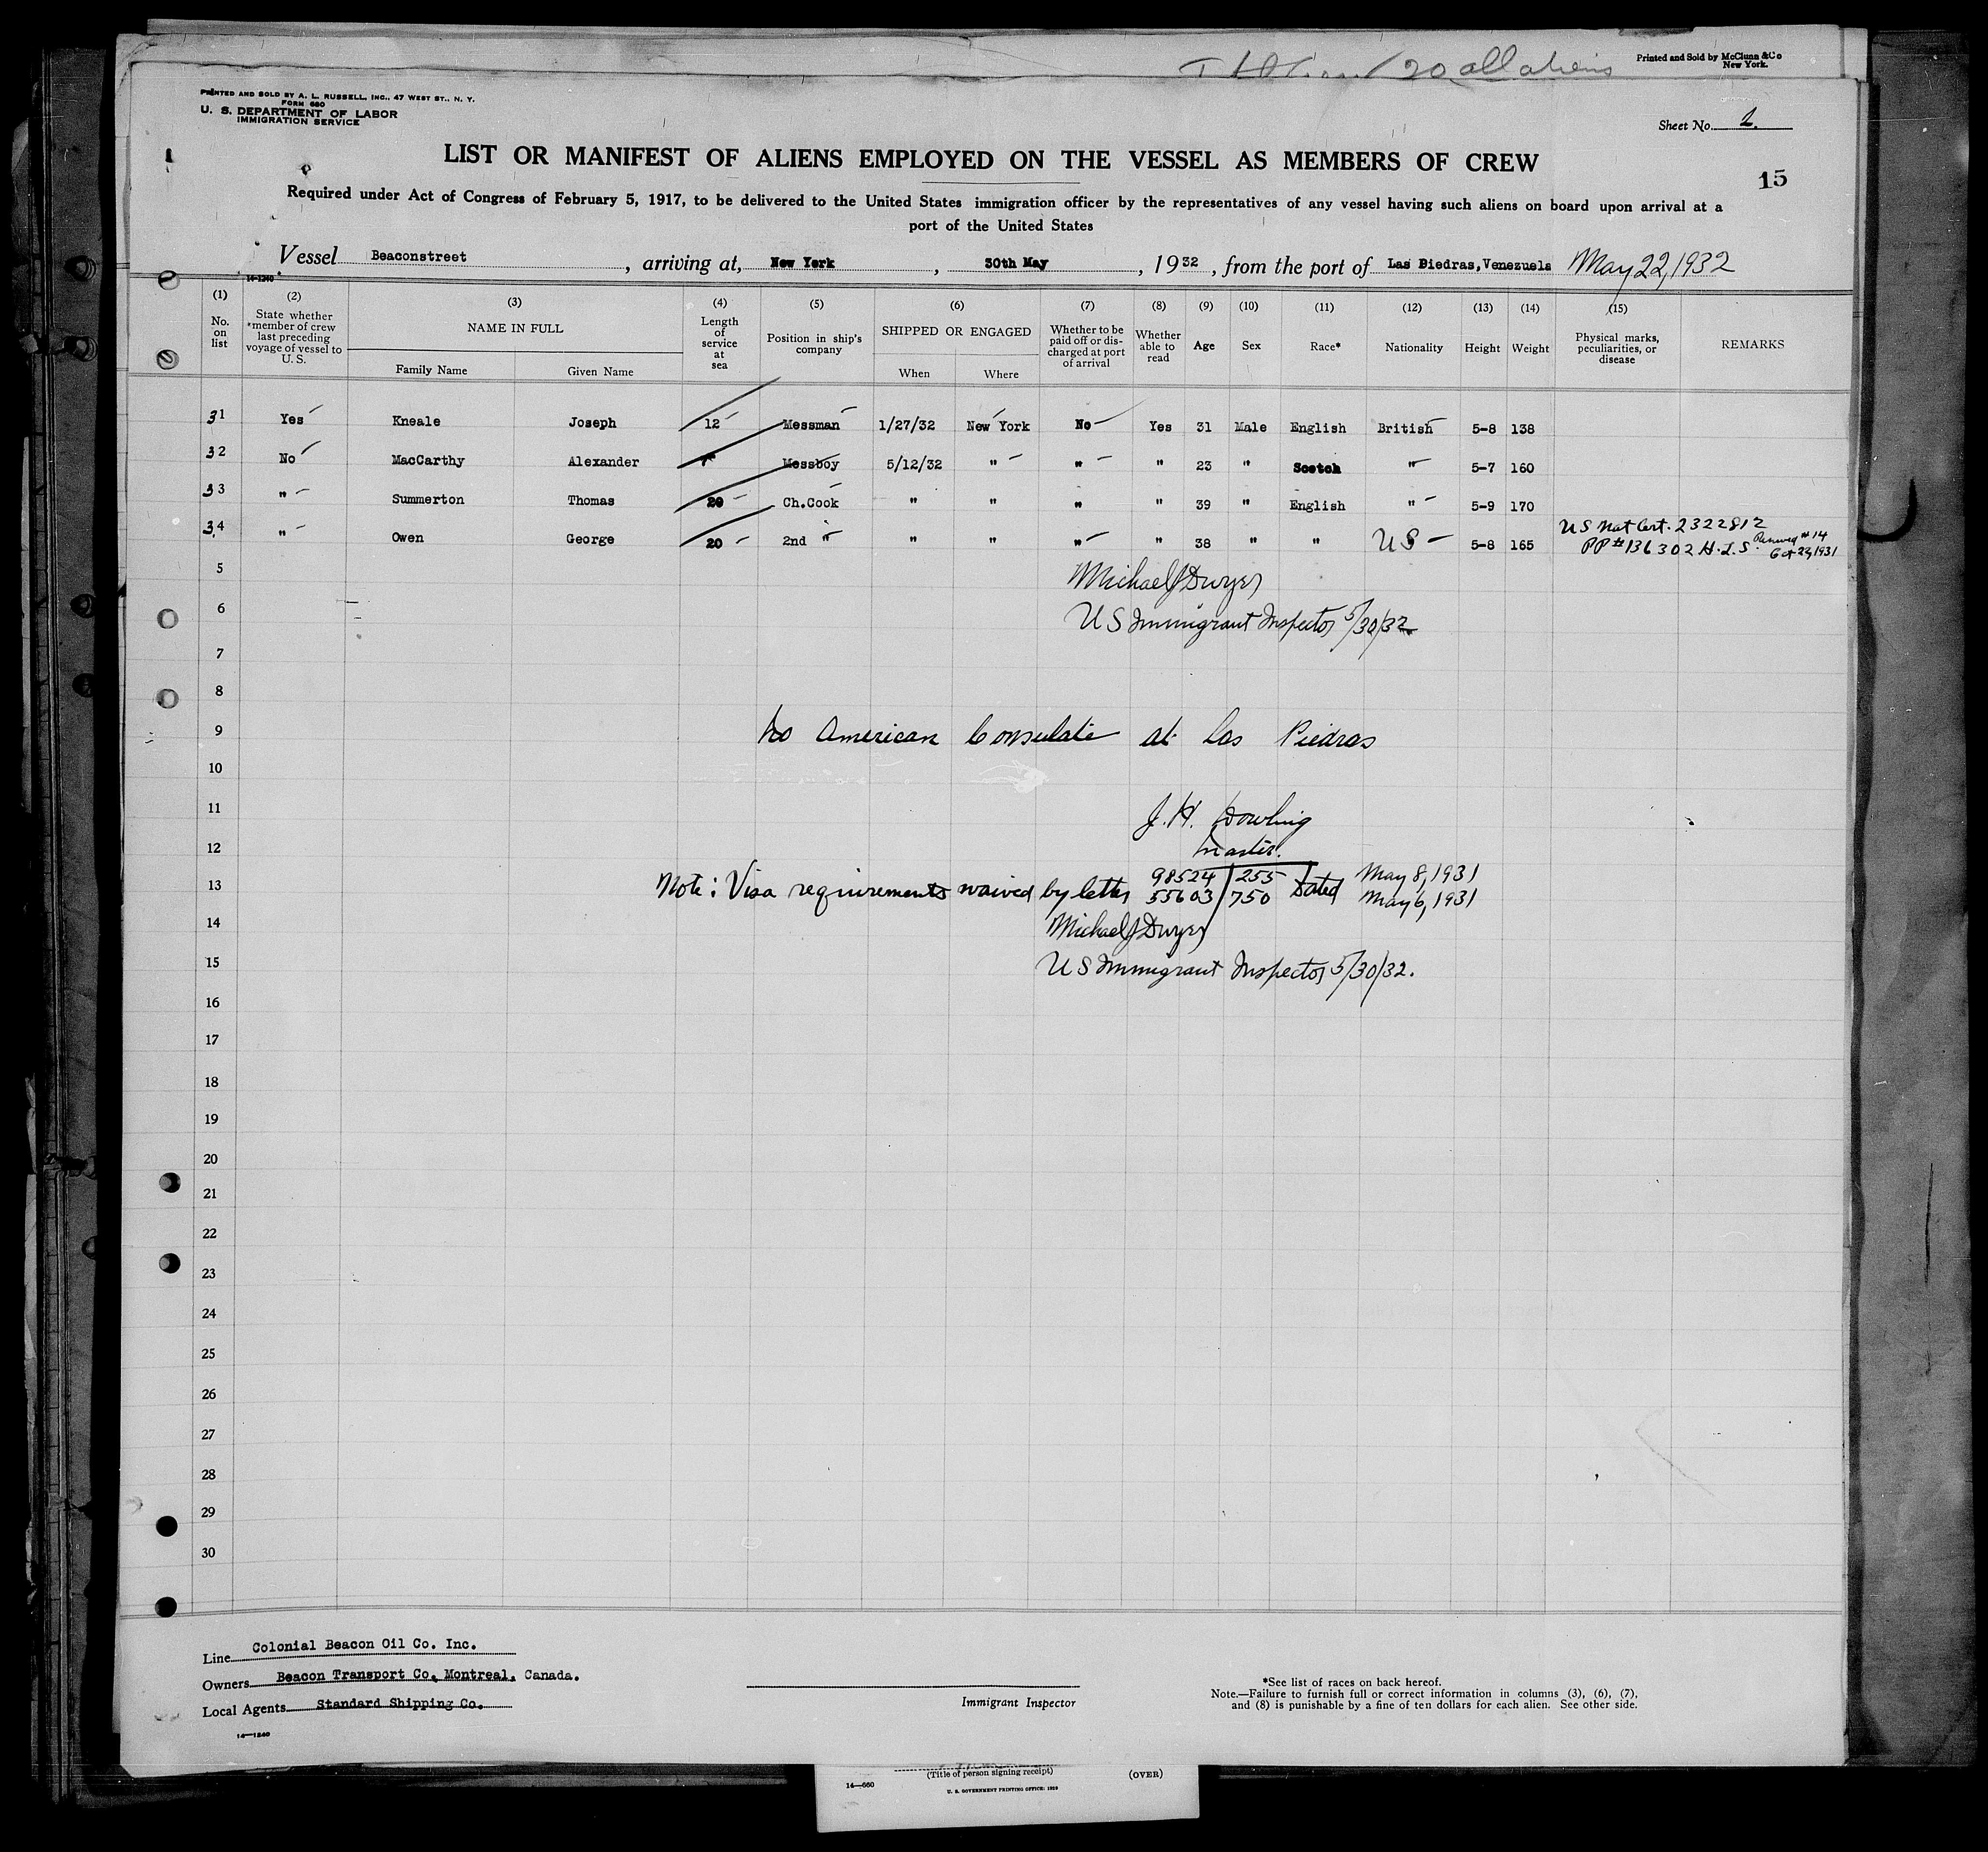 20 all aliens
Printed and Sold by McClunn & Co
New York.
PRINTED AND SOLD BY A. L. RUSSELL, INC., 47 WEST ST., N. Y.
FORM 680
U. S. DEPARTMENT OF LABOR
IMMIGRATION SERVICE
Sheet No. 2.
LIST OR MANIFEST OF ALIENS EMPLOYED ON THE VESSEL AS MEMBERS OF CREW
15
Required under Act of Congress of February 5, 1917, to be delivered to the United States immigration officer by the representatives of any vessel having such aliens on board upon arrival at a
port of the United States
Vessel Beaconstreet, arriving at, New York, 30th May, 1932, from the port of Las Piedras, Venezuela May 22, 1932
14-1240
(1) No. on list
(2) State whether *member of crew last preceding voyage of vessel to U. S.
(3) NAME IN FULL Family Name Given Name
(4) Length of service at sea
(5) Position in ship's company
(6) SHIPPED OR ENGAGED When Where
(7) Whether to be paid off or discharged at port of arrival
(8) Whether able to read
(9) Age
(10) Sex
(11) Race*
(12) Nationality
(13) Height
(14) Weight
(15) Physical marks, peculiarities, or disease
REMARKS
31 Yes Kneale Joseph 12 Messman 1/27/32 New York No Yes 31 Male English British 5-8 138
32 No MacCarthy Alexander Messboy 5/12/32 " " " 23 " Scotch " 5-7 160
33 " Summerton Thomas 20 Ch.Cook " " " " 39 " English " 5-9 170
34 " Owen George 20 2nd " " " " " 38 " " US 5-8 165 US Nat Cert. 2322812
PP #136302 H.L.S. Renewed #14 Oct 22, 1931
5 Michael J Dwyer
6 US Immigrant Inspector 5/30/32
7
8
9 No American Consulate at Las Piedras
10
11 J. H. Dowling
12 Master.
13 Note: Visa requirements waived by letter 98524/255 Dated May 8, 1931
55603/750 May 6, 1931
14 Michael J Dwyer
15 US Immigrant Inspector 5/30/32.
16
17
18
19
20
21
22
23
24
25
26
27
28
29
30
Line Colonial Beacon Oil Co. Inc.
Owners Beacon Transport Co, Montreal, Canada.
Local Agents Standard Shipping Co.
14-1240
Immigrant Inspector
*See list of races on back hereof.
Note.—Failure to furnish full or correct information in columns (3), (6), (7),
and (8) is punishable by a fine of ten dollars for each alien. See other side.
(Title of person signing receipt)
14-660
U. S. GOVERNMENT PRINTING OFFICE: 1929
(OVER)